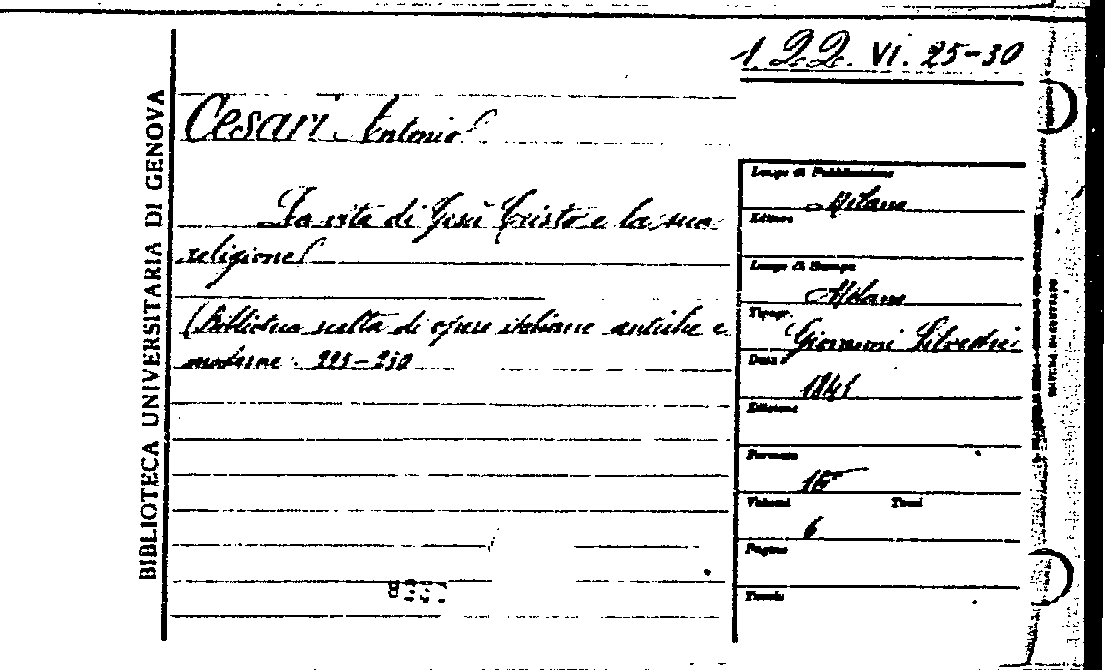 1. 22. VI. 25-30
BIBLIOTECA UNIVERSITARIA DI GENOVA
Cesari Antonio
La vita di Gesù Cristo e la sua
religione
(Biblioteca scelta di opere italiane antiche e
moderne
Luogo di Pubblicazione
Milano
Editore
Luogo di Stampa
Milano
Tipogr.
Giovanni Silvestri
Data
1841
Edizione
Formato
16°
Volumi Tomi
6
Pagine
Tavole